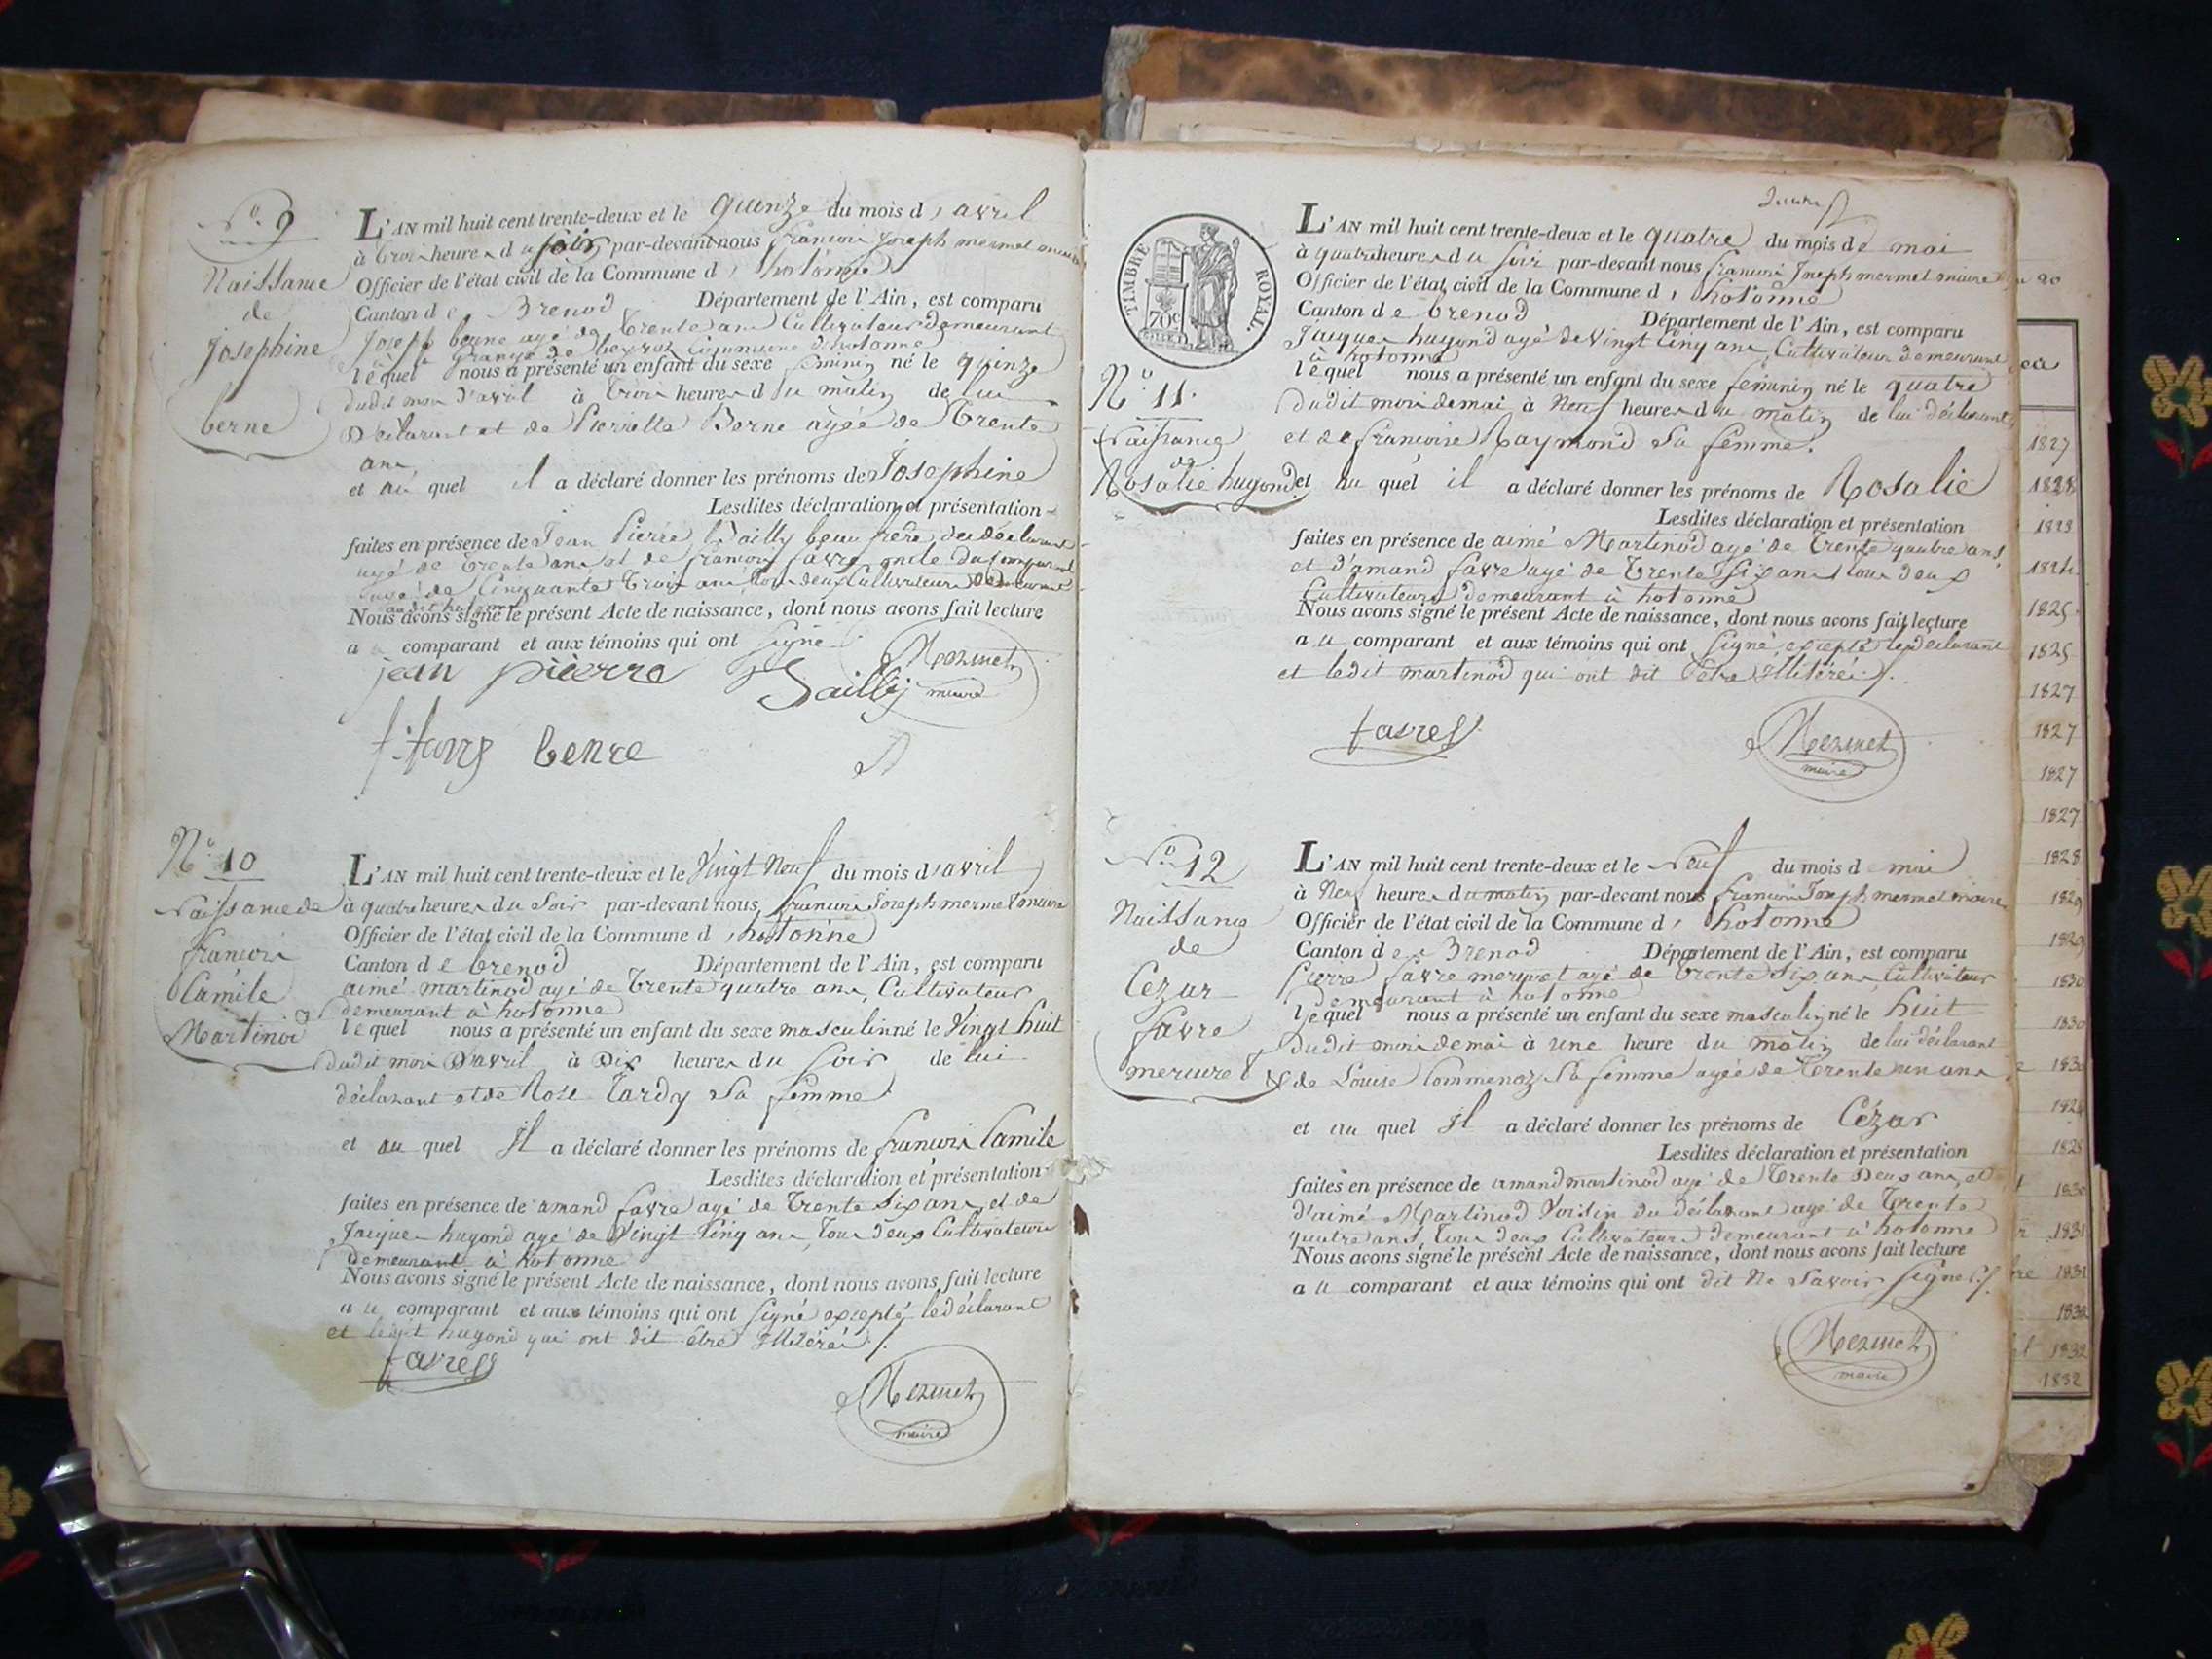 N.° 9
Naissance
de
Josephine
berne
L'AN mil huit cent trente-deux et le quinze du mois d'avril
à trois heures du soir par-devant nous francois Joseph mermet maire
Officier de l'état civil de la Commune d'hotonne
Canton de Brenod Département de l'Ain, est comparu
Joseph berne agé de trente ans Cultivateur demeurant
à grange de Commune d'hotonne
lequel nous a présenté un enfant du sexe feminin né le quinze
dudit mois d'avril à trois heures du matin de lui
Déclarant et de Pierrette Berne agée de trente
ans,
et au quel il a déclaré donner les prénoms de Josephine
Lesdites déclaration et présentation
faites en présence de Jean Pierre beau frère du déclarant
agé de trente ans et de francois favre oncle du comparant
agé de Cinquante trois ans tous deux Cultivateurs demeurant
audit hotonne
Nous avons signé le présent Acte de naissance, dont nous avons fait lecture
au comparant et aux témoins qui ont signé
jean pierre Bailly Mermet
maire
f. favre berne
N.° 10
Naissance de
francois
Camile
Martinod
L'AN mil huit cent trente-deux et le Vingt Neuf du mois d'avril
à quatre heures du soir par-devant nous francois Joseph mermet maire
Officier de l'état civil de la Commune d'hotonne
Canton de brenod Département de l'Ain, est comparu
aimé martinod agé de trente quatre ans, Cultivateur
demeurant à hotonne
lequel nous a présenté un enfant du sexe masculin né le Vingt huit
dudit mois D'avril à Dix heures du soir de lui
déclarant et de Rose Tardy Sa femme
et au quel Il a déclaré donner les prénoms de francois Camile
Lesdites déclaration et présentation
faites en présence de amand favre agé de trente six ans et de
Jacques hugond agé de Vingt Cinq ans Tous deux Cultivateurs
demeurant à hotonne
Nous avons signé le présent Acte de naissance, dont nous avons fait lecture
au comparant et aux témoins qui ont signé excepté le déclarant
et ledit hugond qui ont dit être Illitérés.
favre
Mermet
maire
TIMBRE ROYAL.
70c
N.° 11.
Naissance
de
Rosalie hugond
L'AN mil huit cent trente-deux et le quatre du mois de mai
à quatre heures du soir par-devant nous francois Joseph mermet maire
Officier de l'état civil de la Commune d'hotonne
Canton de brenod Département de l'Ain, est comparu
Jacques hugond agé de Vingt Cinq ans, Cultivateur demeurant
à hotonne
lequel nous a présenté un enfant du sexe feminin né le quatre
Dudit mois de mai à Neuf heures du matin de lui déclarant
et de francoise Raymond Sa femme.
et au quel il a déclaré donner les prénoms de Rosalie
Lesdites déclaration et présentation
faites en présence de aimé Martinod agé de trente quatre ans
et d'amand favre agé de trente Six ans tous deux
Cultivateurs demeurant à hotonne
Nous avons signé le présent Acte de naissance, dont nous avons fait lecture
au comparant et aux témoins qui ont signé, excepté le déclarant
et ledit martinod qui ont dit être Illitérés.
favre
Mermet
maire
N.° 12
Naissance
de
Cézar
favre
mercuret
L'AN mil huit cent trente-deux et le Neuf du mois de mai
à Neuf heures du matin par-devant nous francois Joseph mermet maire
Officier de l'état civil de la Commune d'hotonne
Canton de Brenod Département de l'Ain, est comparu
Pierre favre mercuret agé de trente Six ans, Cultivateur
demeurant à hotonne
lequel nous a présenté un enfant du sexe masculin né le huit
Dudit mois de mai à une heure du matin de lui déclarant
& de Louise Commenoz Sa femme agée de trente un ans
et au quel Il a déclaré donner les prénoms de Cézar
Lesdites déclaration et présentation
faites en présence de amand martinod agé de trente Deux ans, et
d'aimé Martinod Voisin du déclarant agé de trente
quatre ans, tous deux Cultivateurs demeurant à hotonne
Nous avons signé le présent Acte de naissance, dont nous avons fait lecture
au comparant et aux témoins qui ont dit Ne Savoir Signer.
Mermet
maire
1827
1828
1827
1827
1827
1827
1828
1829
1829
1830
1830
1830
1828
1830
1831
1831
1832
1832
1832